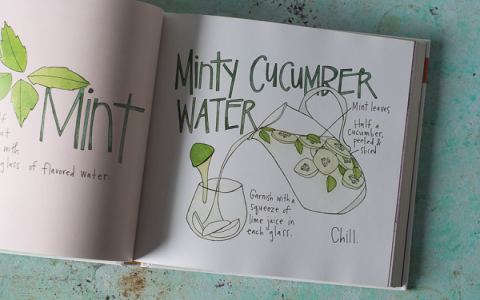 Mint
with
glass of flavored water.
Minty Cucumber
Water
Mint leaves
Half a
cucumber,
peeled &
sliced
Garnish with a
squeeze of
lime juice in
each glass.
Chill.